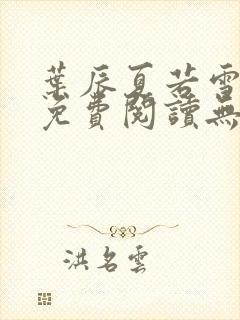 葉辰夏若雪
免費閱讀無
洪名雲